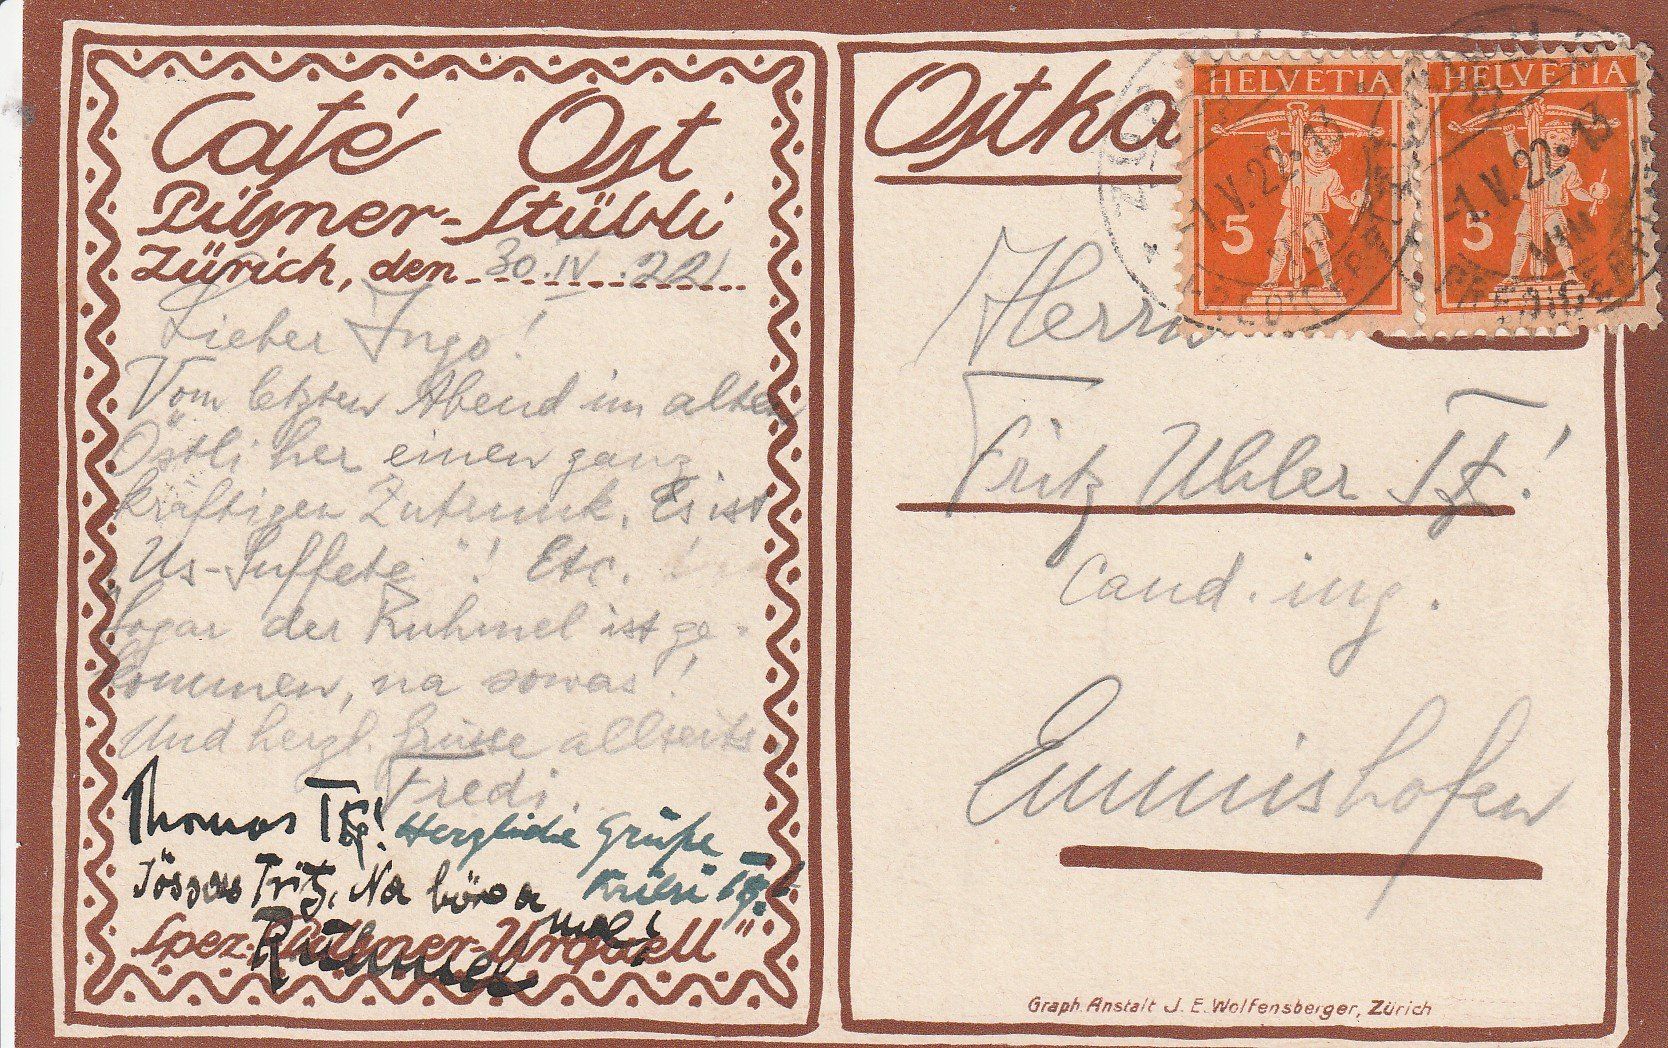 Café Ost
Pilsner-Stübli
Zürich, den 30.IV.22
Lieber Ingo!
Vom letzten Abend im alten
Östli her einen ganz
kräftigen Zutrunk. Es ist
"Us-Suffete"! Etc.
Sogar der Ruhmel ist ge-
kommen, na sowas!
Und herzl. Grüsse allseits.
Fredi.
Thomas
Herzliche Grüße
Fritz, Na
Spez. "Pilsner-Urquell"
Ruhmel
Ostka
HELVETIA
5
-1.V.22.13
VIII
HELVETIA
5
-1.V.22.13
VIII
Herrn
Fritz Uhler
cand. ing.
Emmishofen
Graph. Anstalt J. E. Wolfensberger, Zürich